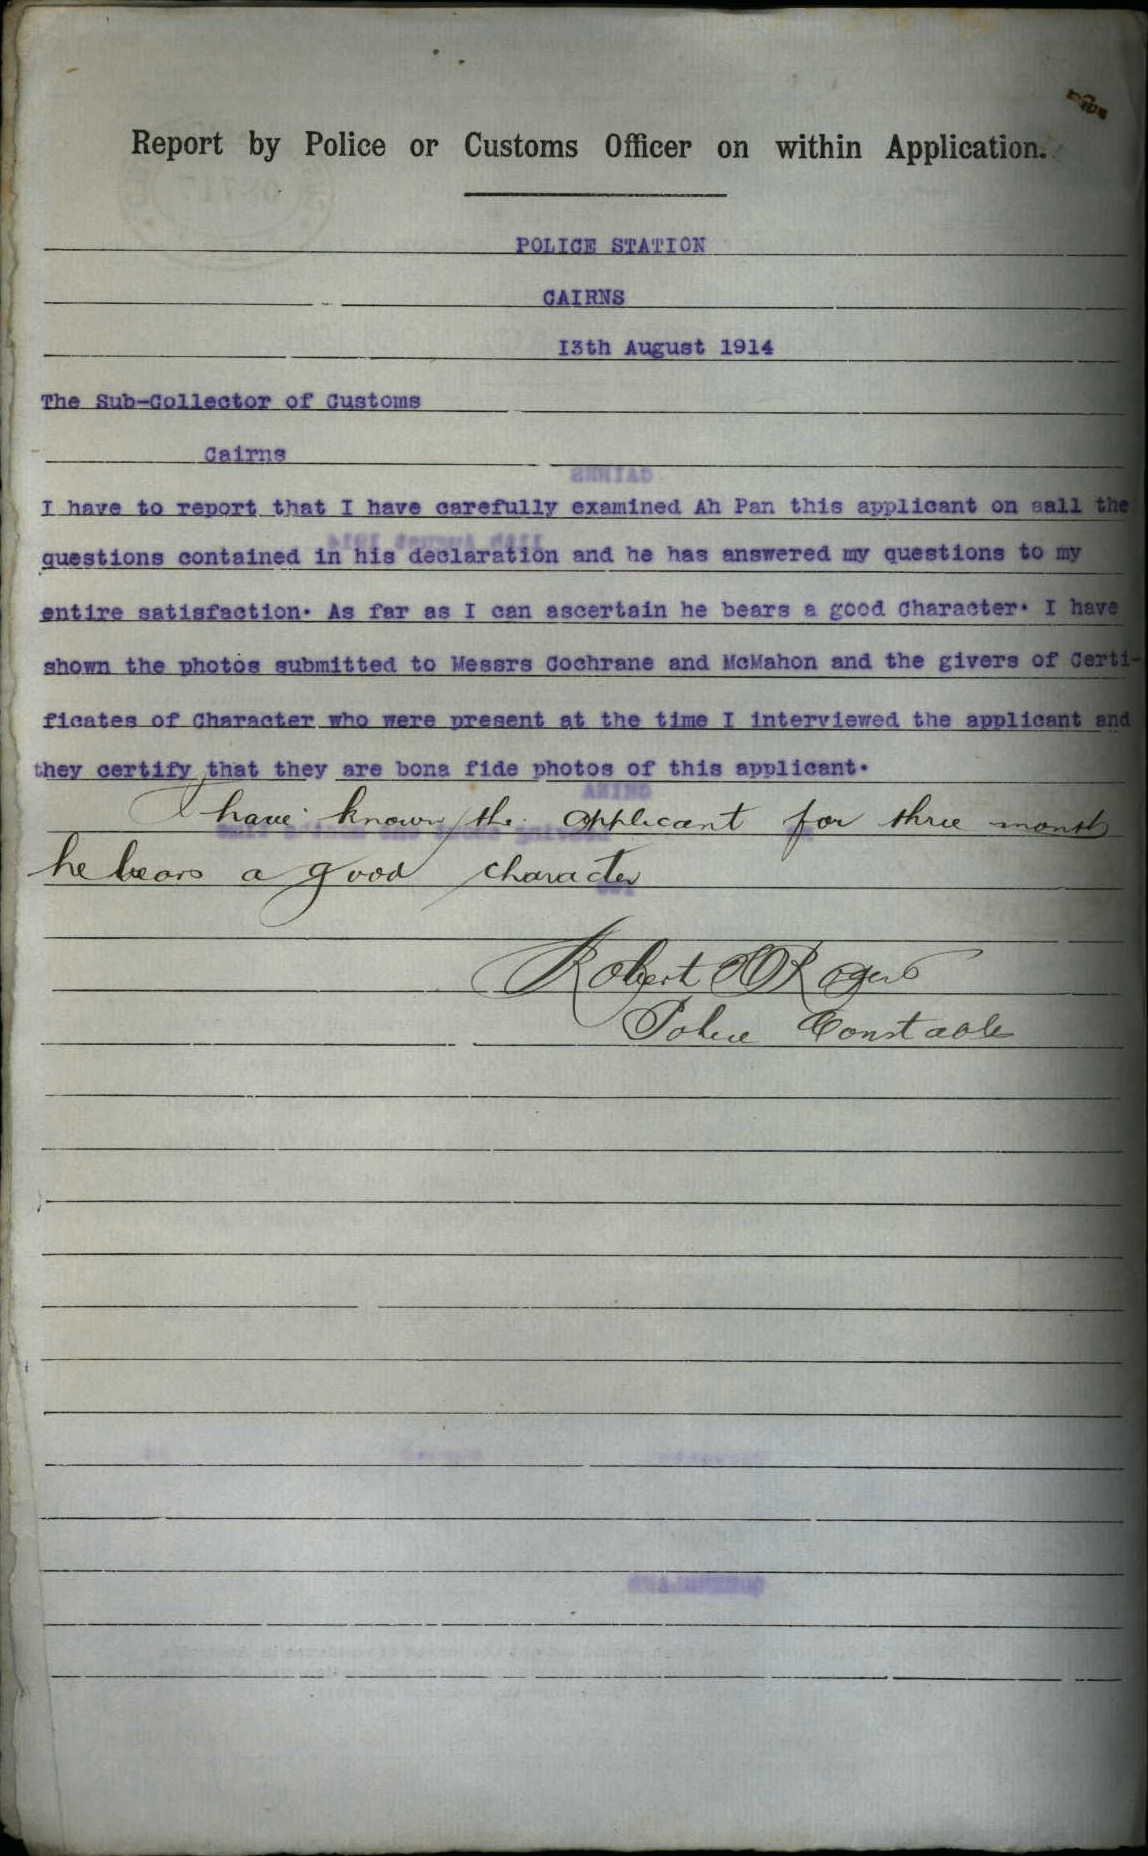 Report by Police or Customs Officer on within Application.
POLICE STATION
CAIRNS
13th August 1914
The Sub-Collector of Customs
Cairns
I have to report that I have carefully examined Ah Pan this applicant on aall the
questions contained in his declaration and he has answered my questions to my
entire satisfaction. As far as I can ascertain he bears a good Character. I have
shown the photos submitted to Messrs Cochrane and McMahon and the givers of Certi-
ficates of Character who were present at the time I interviewed the applicant and
they certify that they are bona fide photos of this applicant.
I have known the applicant for three months
he bears a good character
Robert Rogers
Police Constable